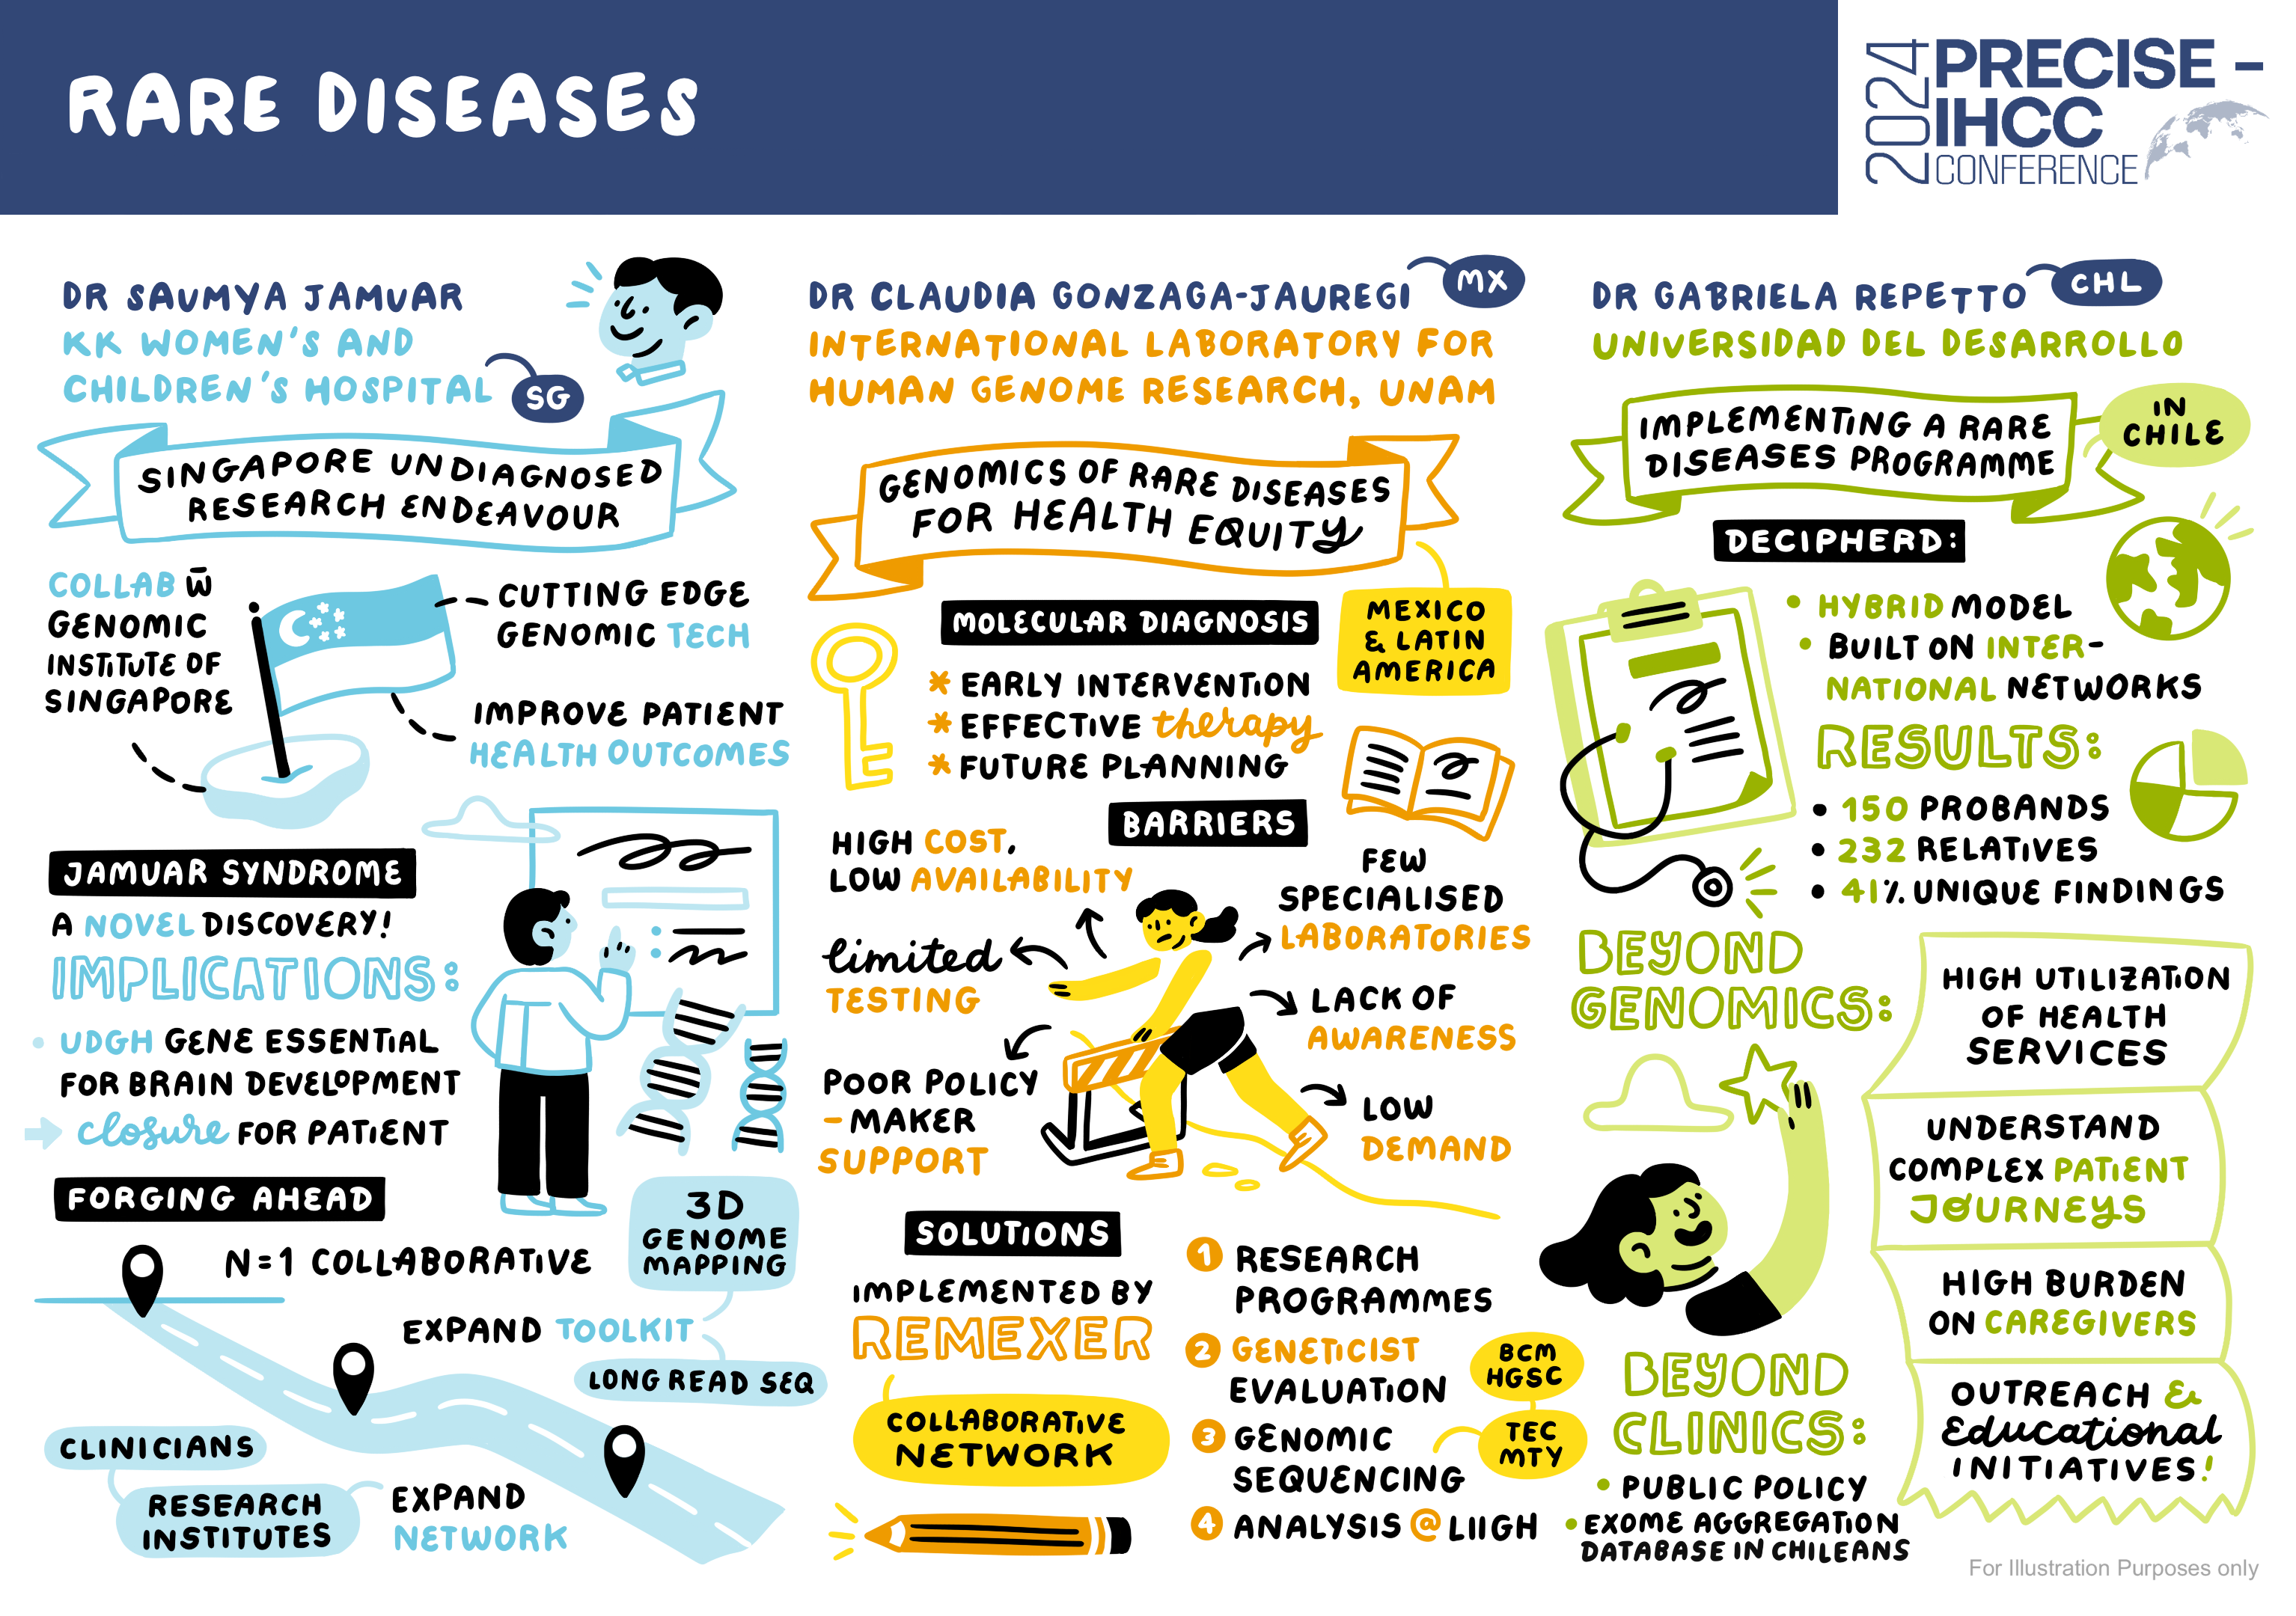 RARE DISEASES
2024 PRECISE –
IHCC
CONFERENCE
DR SAUMYA JAMUAR
KK WOMEN'S AND
CHILDREN'S HOSPITAL
SG
SINGAPORE UNDIAGNOSED
RESEARCH ENDEAVOUR
COLLAB W̄
GENOMIC
INSTITUTE OF
SINGAPORE
CUTTING EDGE
GENOMIC TECH
IMPROVE PATIENT
HEALTH OUTCOMES
JAMUAR SYNDROME
A NOVEL DISCOVERY!
IMPLICATIONS:
• UDGH GENE ESSENTIAL
FOR BRAIN DEVELOPMENT
→ closure FOR PATIENT
FORGING AHEAD
N=1 COLLABORATIVE
3D
GENOME
MAPPING
EXPAND TOOLKIT
LONG READ SEQ
CLINICIANS
RESEARCH
INSTITUTES
EXPAND
NETWORK
DR CLAUDIA GONZAGA-JAUREGI
MX
INTERNATIONAL LABORATORY FOR
HUMAN GENOME RESEARCH, UNAM
GENOMICS OF RARE DISEASES
FOR HEALTH EQUITY
MEXICO
& LATIN
AMERICA
MOLECULAR DIAGNOSIS
* EARLY INTERVENTION
* EFFECTIVE therapy
* FUTURE PLANNING
BARRIERS
HIGH COST,
LOW AVAILABILITY
limited
TESTING
POOR POLICY
-MAKER
SUPPORT
FEW
SPECIALISED
LABORATORIES
LACK OF
AWARENESS
LOW
DEMAND
SOLUTIONS
IMPLEMENTED BY
REMEXER
COLLABORATIVE
NETWORK
1 RESEARCH
PROGRAMMES
2 GENETICIST
EVALUATION
3 GENOMIC
SEQUENCING
BCM
HGSC
TEC
MTY
4 ANALYSIS @ LIIGH
DR GABRIELA REPETTO
CHL
UNIVERSIDAD DEL DESARROLLO
IMPLEMENTING A RARE
DISEASES PROGRAMME
IN
CHILE
DECIPHERD:
• HYBRID MODEL
• BUILT ON INTER-
NATIONAL NETWORKS
RESULTS:
• 150 PROBANDS
• 232 RELATIVES
• 41% UNIQUE FINDINGS
BEYOND
GENOMICS:
HIGH UTILIZATION
OF HEALTH
SERVICES
UNDERSTAND
COMPLEX PATIENT
JOURNEYS
HIGH BURDEN
ON CAREGIVERS
OUTREACH &
Educational
INITIATIVES!
BEYOND
CLINICS:
• PUBLIC POLICY
• EXOME AGGREGATION
DATABASE IN CHILEANS
For Illustration Purposes only